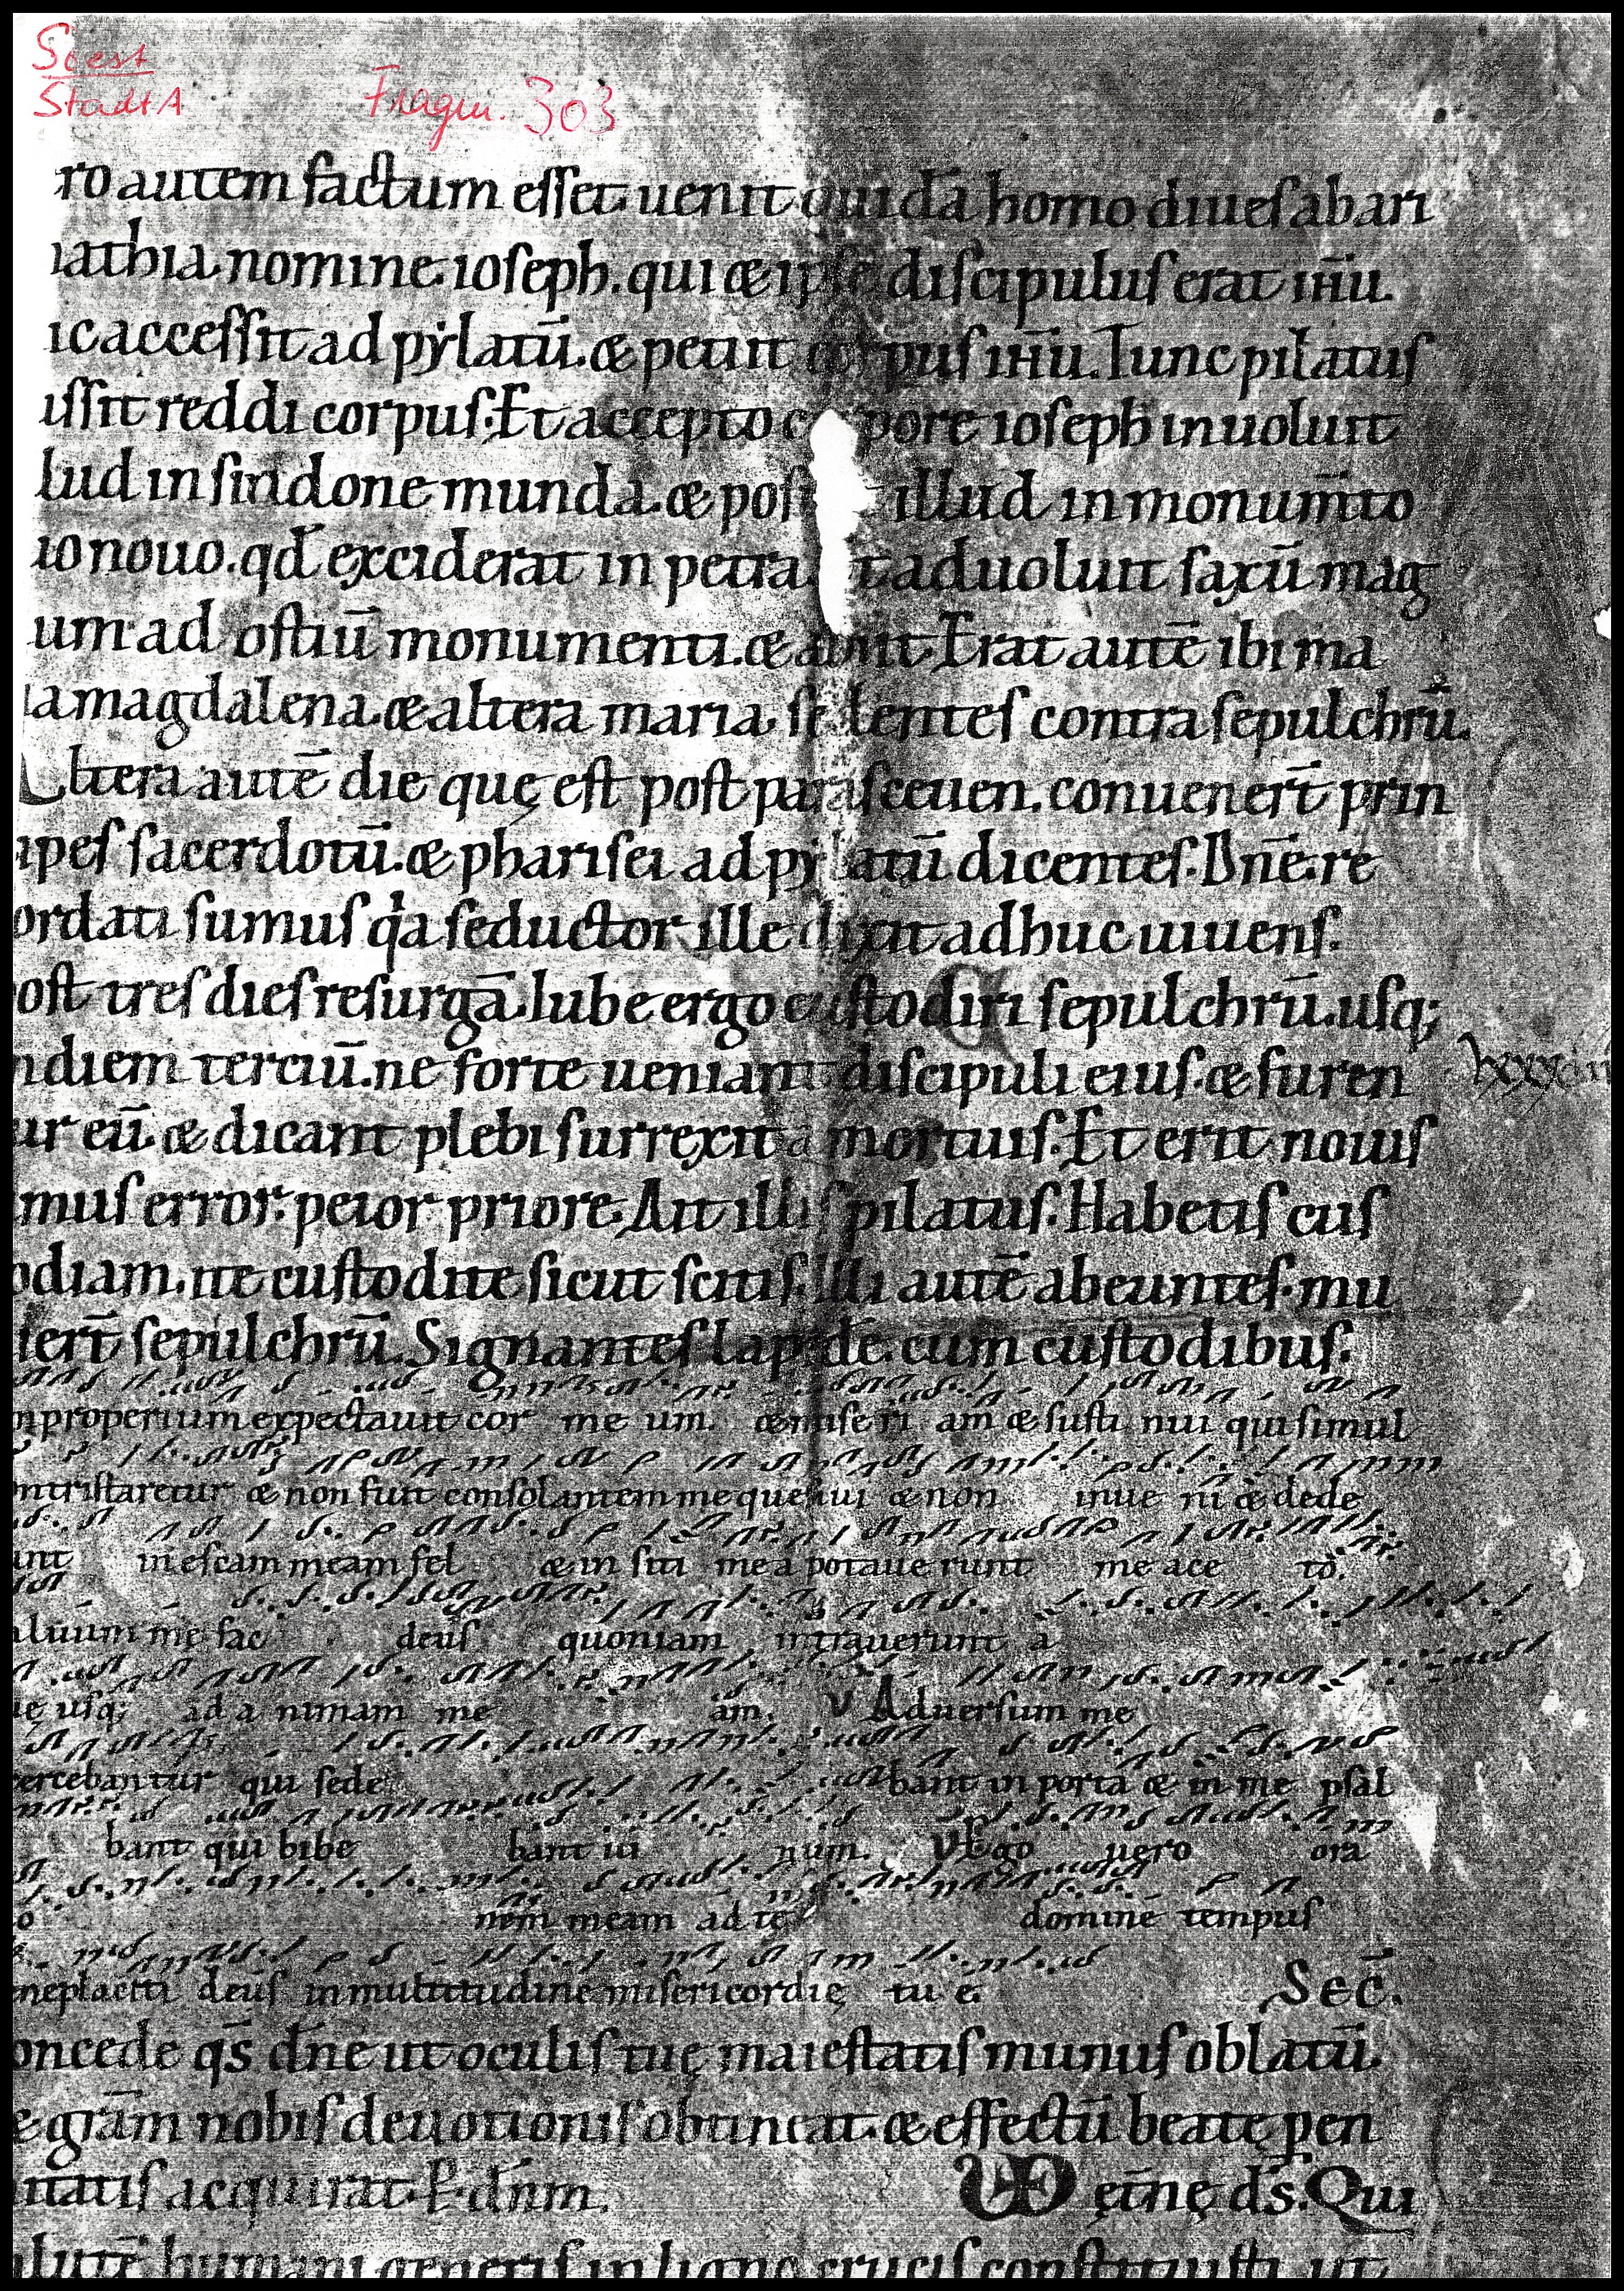 Soest
StadtA
Fragm. 303
ro autem factum esset uenit quidā homo diues abari
iathia nomine ioseph. qui & ipse discipulus erat ihū.
ic accessit ad pẏlatū. & petiit corpus ihū. Tunc pilatus
ussit reddi corpus. Et accepto corpore ioseph inuoluit
lud in sindone munda. & posu illud in monum̄to
io nouo. qd̄ exciderat in petra t aduoluit saxū mag
um ad ostiū monumenti. & abiit. Erat autē ibi ma
ia magdalena. & altera maria. sedentes contra sepulchrū.
Altera autē die quę est post parasceuen. conuenert̄ prin
ipes sacerdotū. & pharisei ad pylatū dicentes. Dn̄e. re
ordati sumus qa seductor ille dixit adhuc uiuens.
ost tres dies resurgā. Iube ergo custodiri sepulchrū. usq;
ndiem terciū. ne forte ueniant discipuli eius. & furen
lxxx
ur eū. & dicant plebi surrexit a mortuis. Et erit nouis
mus error. peior priore. Ait illis pilatus. Habetis cus
odiam. ite custodite sicut scitis. Illi autē abeuntes. mu
iert̄ sepulchrū. Signantes lapidē. cum custodibus.
nproperium expectauit cor me um. & mise ri am & susti nui qui simul
ntristaretur & non fuit consolantem me quesiui & non inue ni & dede
unt in escam meam fel & in siti mea potaue runt me ace to.
aluum me fac deus quoniam intrauerunt a
uę usq; ad a nimam me am. V Aduersum me
xercebantur qui sede bant in porta & in me psal
bant qui bibe bant ui num. V Ego uero ora
o nem meam ad te domine tempus
neplaciti deus in multitudine misericordię tu ę. Sec̄.
oncede qs̄ dn̄e ut oculis tuę maiestatis munus oblatū.
& grām nobis deuotionis obtineat. & effectū beatę pen
nitatis acquirat. P. dn̄m. VD ętn̄ę ds̄. Qui
alutē humani generis in ligno crucis constituisti. ut